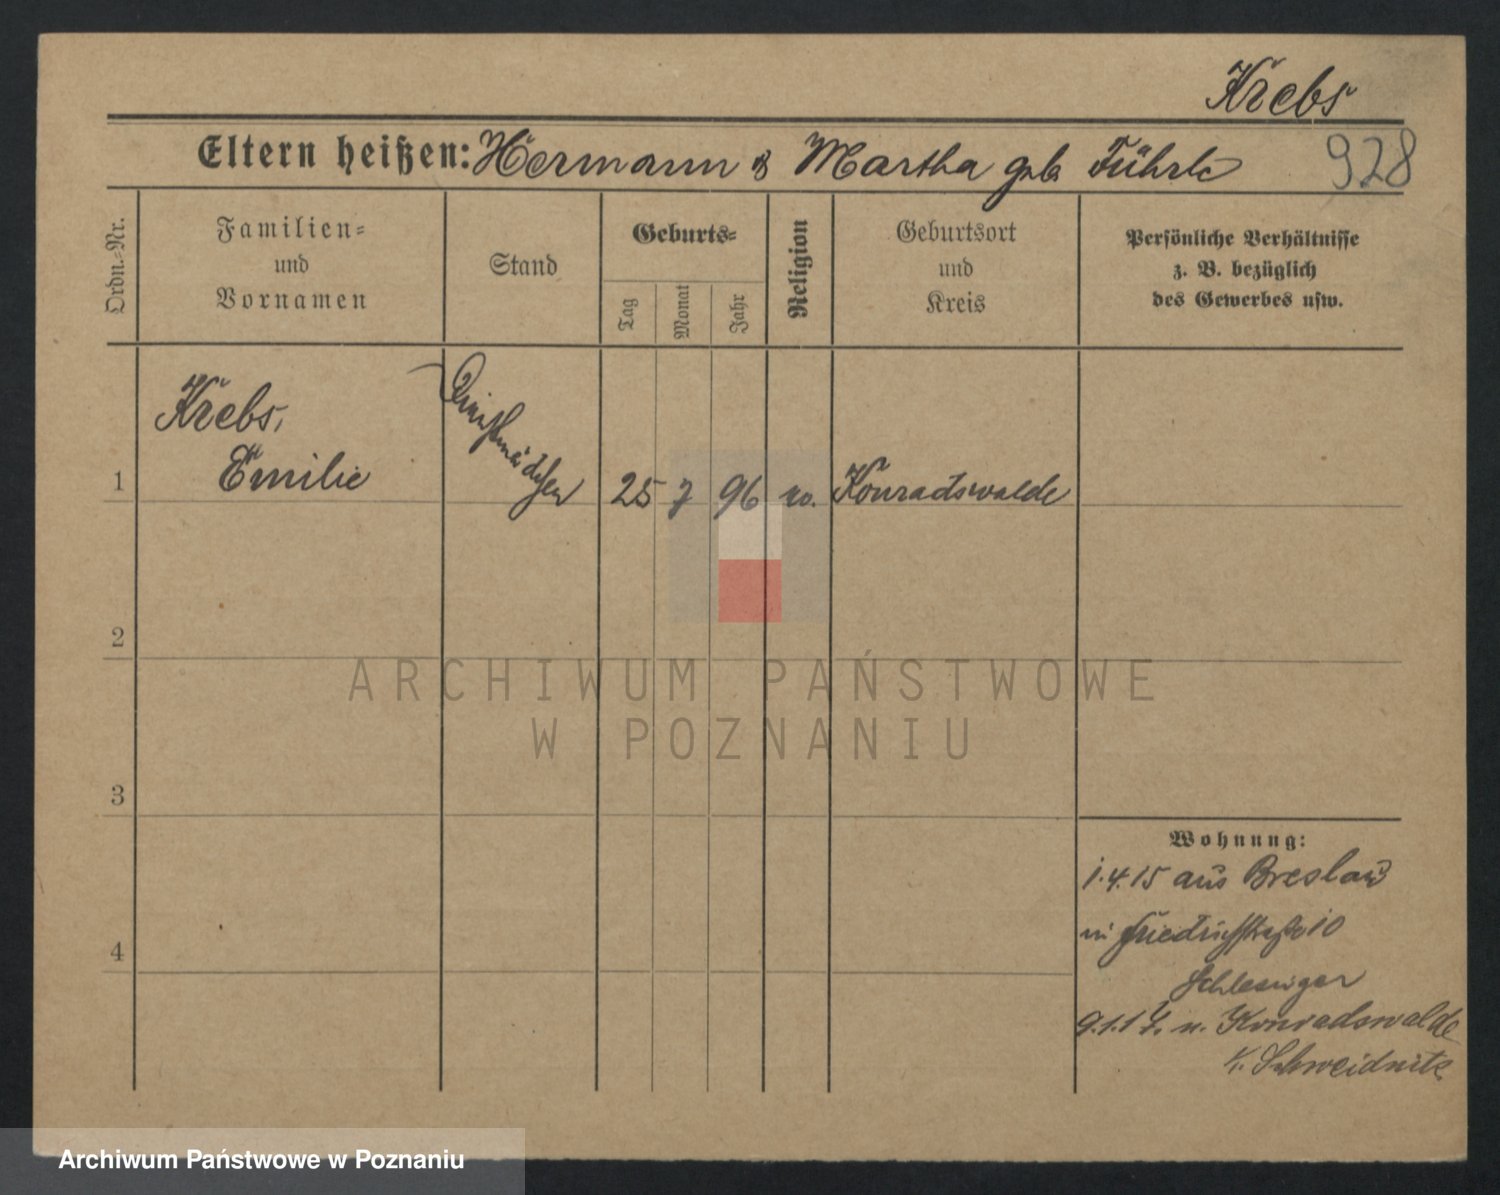 Krebs
Eltern heißen: Hermann & Martha geb. Führle
928
Ordn.-Nr.
Familien-
und
Vornamen
Stand
Geburts-
Tag
Monat
Jahr
Religion
Geburtsort
und
Kreis
Persönliche Verhältnisse
z. B. bezüglich
des Gewerbes usw.
1
Krebs,
Emilie
Dienstmädchen
25 7 96
Konradswalde
2
3
4
Wohnung:
1.4.15 aus Breslau
in Friedrichstraße 10
9.1.17. n. Konradswalde
K. Schweidnitz
ARCHIWUM PAŃSTWOWE
W POZNANIU
Archiwum Państwowe w Poznaniu